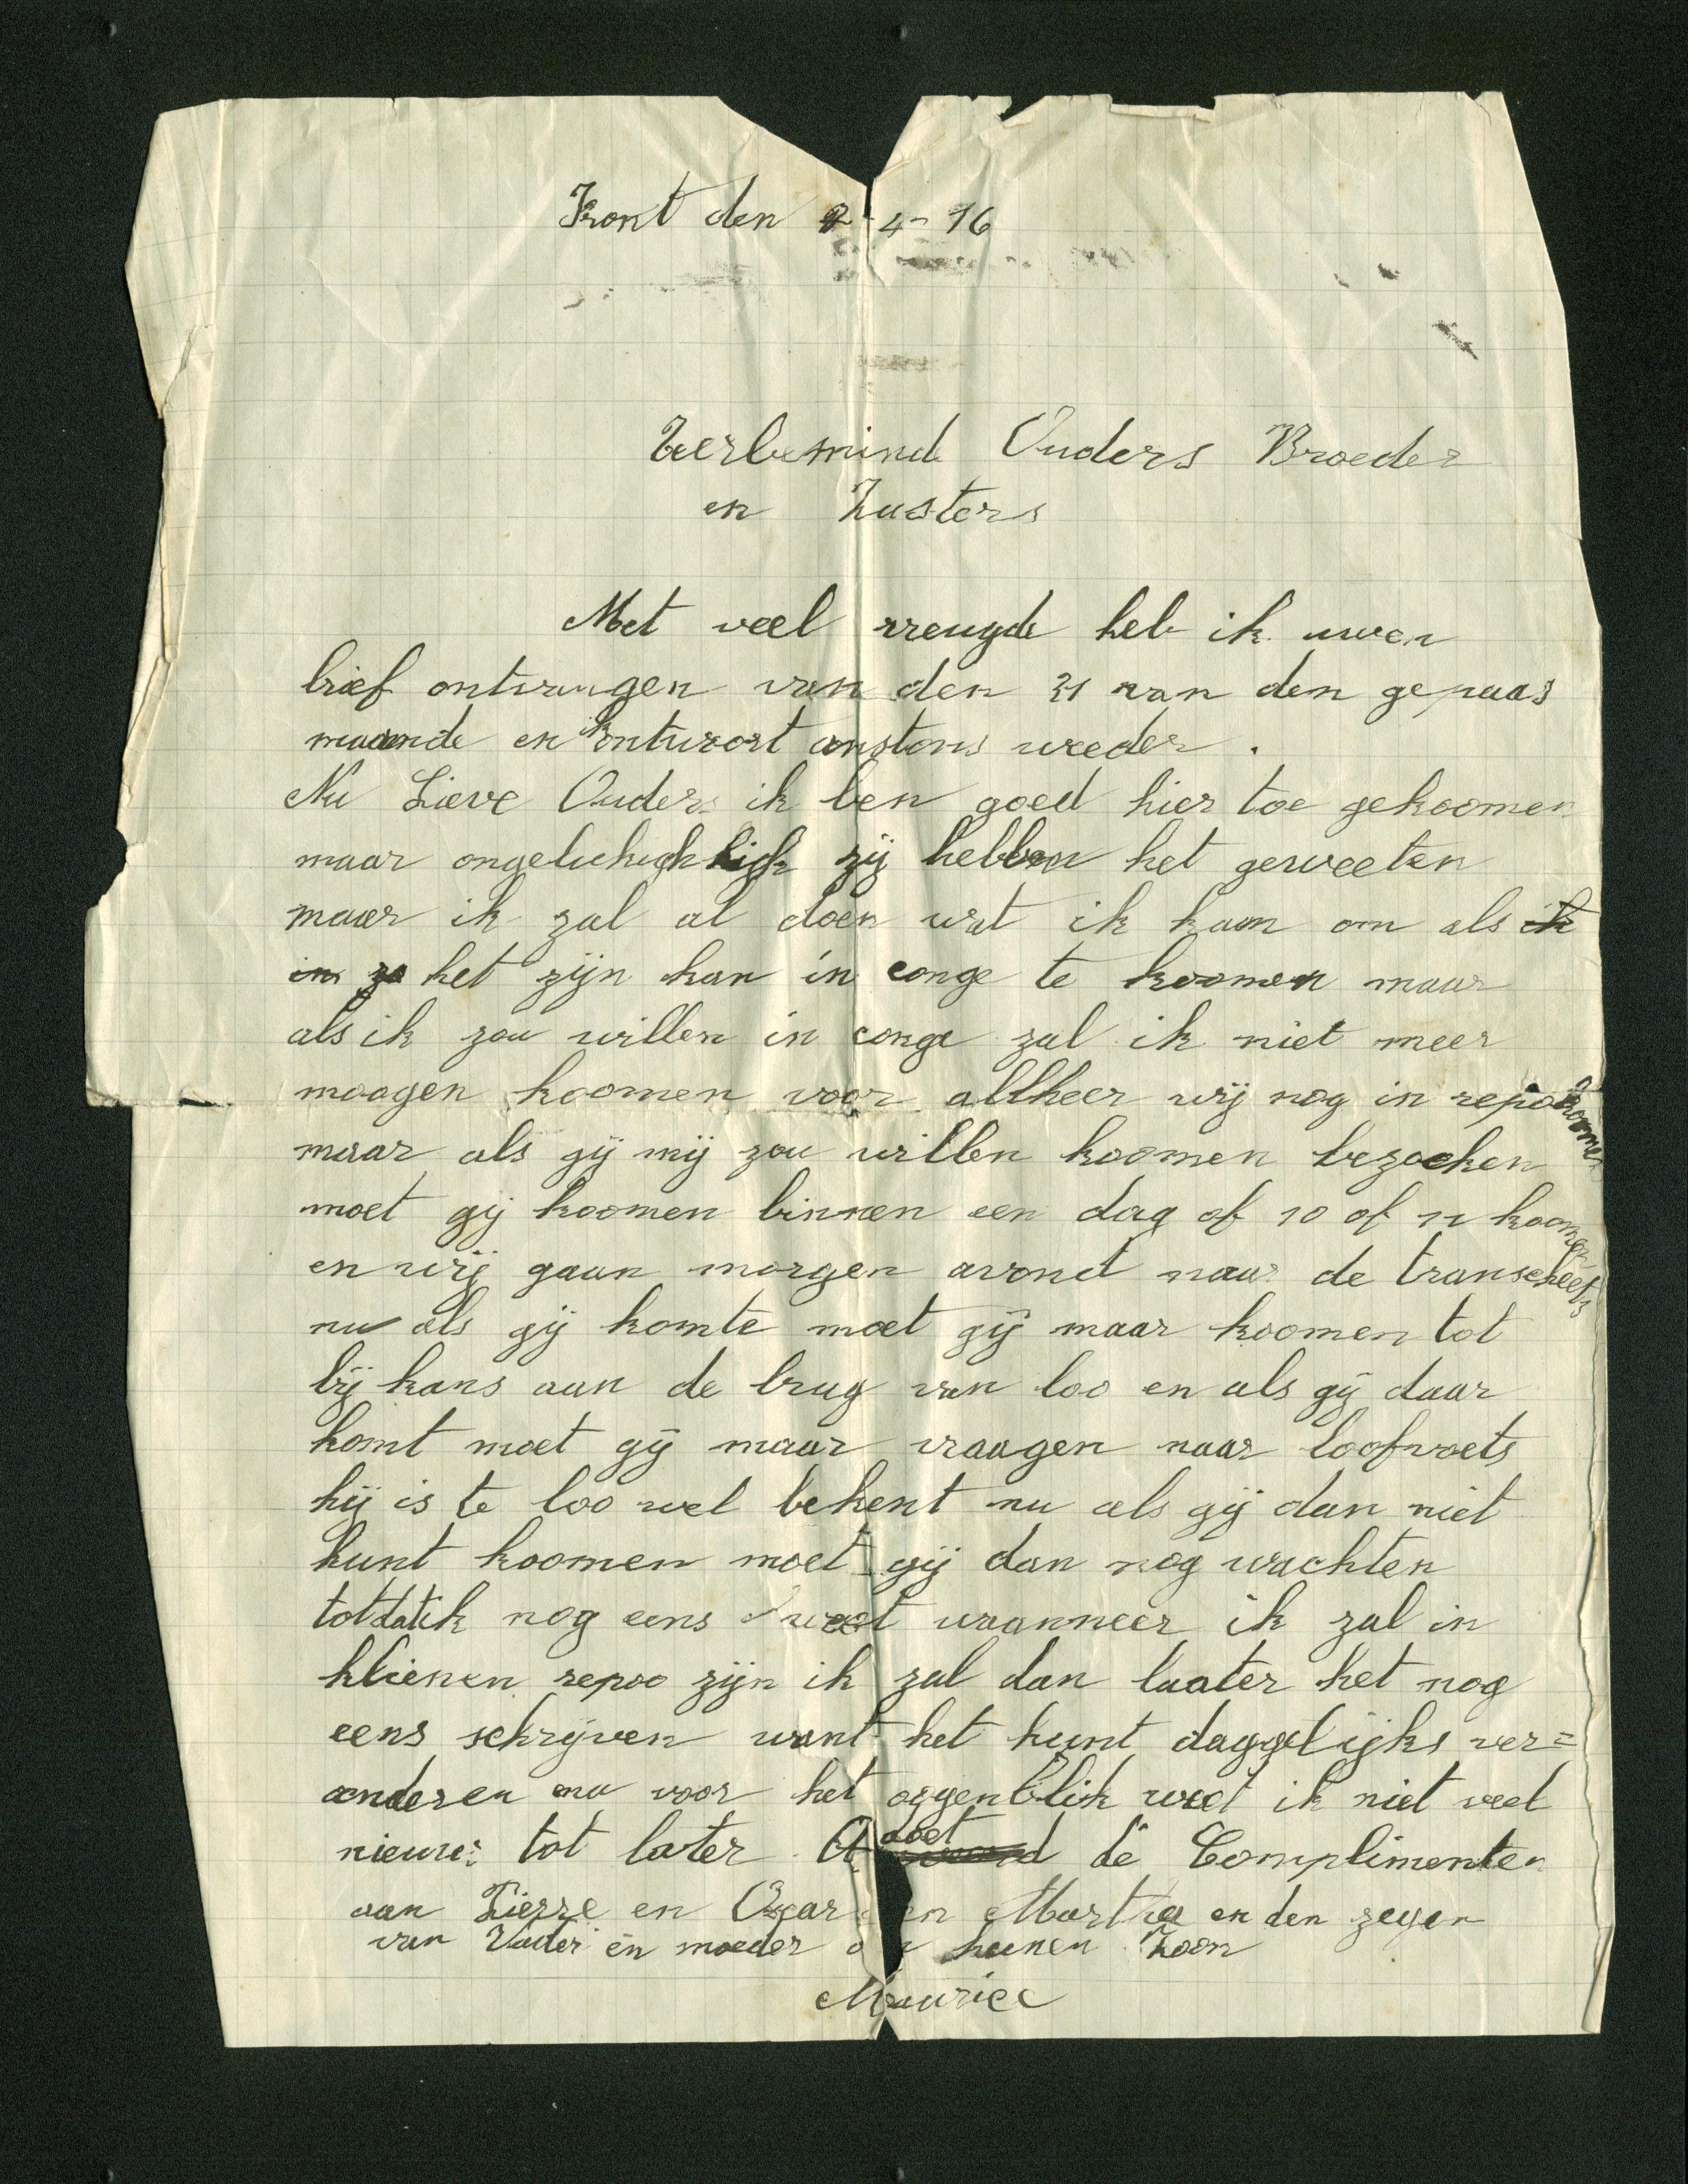 Front den 2-4-16
Zeerbemind Ouders Broeder
en Zusters
Met veel vreugde heb ik uwen
brief ontvangen van den 21 van den gepaas
maande en ik ontwort anstons weeder.
Nu Lieve Ouders ik ben goed hier toe gekoomen
maar zij hebben het geweeten
maar ik zal al doen wat ik kaan om als ik
in zo het zijn kan in conge te koomen maar
als ik zou willen in conge zal ik niet meer
moogen koomen voor alkeer wij nog in repoo koomen
maar als gij mij zou willen koomen bezoeken
moet gij koomen binnen een dag of 10 of 12 koomen
en wij gaan morgen avond naar de transcheets
nu als gij komte moet gij maar koomen tot
bij kans aan de brug van loo en als gij daar
komt moet gij maar vraagen naar loofvoets
hij is te loo wel bekent nu als gij dan niet
kunt koomen moet gij dan nog wachten
totdatik nog eens weet wanneer ik zal in
klienen repoo zijn ik zal dan laater het nog
eens schrijven want het kunt daggelijks ver=
anderen nu voor het oggenblik weet ik niet veel
nieuws tot later doet de Complimenten
aan Pierre en Oscar en Martha en den zegen
van Vader en moeder hunen Zoon
Maurice